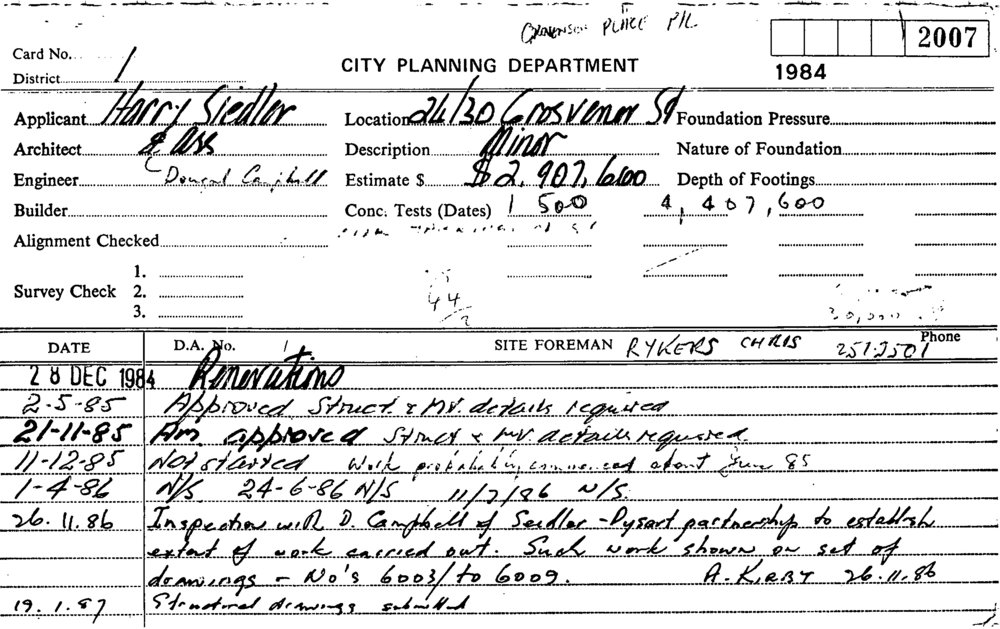 GROVENSOR PLACE P/L.
2007
Card No... 1
CITY PLANNING DEPARTMENT
1984
District
Applicant Harry Siedler
Location 24/30 Grosvenor St
Foundation Pressure
Architect & Ass
Description Minor
Nature of Foundation
Engineer Dougal Campbell
Estimate $ $2,907,600
Depth of Footings
Builder
Conc. Tests (Dates) 1 500 4,407,600
Alignment Checked
Survey Check
1.
2.
3.
44/2
30,000
DATE D.A. No. 1 SITE FOREMAN RYKERS CHRIS 251 2501 Phone
28 DEC 1984 Renovations
2-5-85 Approved Struct. & MV. details required
21-11-85 Am. approved Struct & MV. details required.
11-12-85 Not started Work probably commenced about June 85
1-4-86 N/S 24-6-86 N/S 11/7/86 N/S.
26.11.86 Inspection with D. Campbell of Seidler-Dysart partnership to establish
extent of work carried out. Such work shown on set of
drawings - No's 6003/to 6009. A. KIRBY 26.11.86
19.1.87 Structural drawings submitted